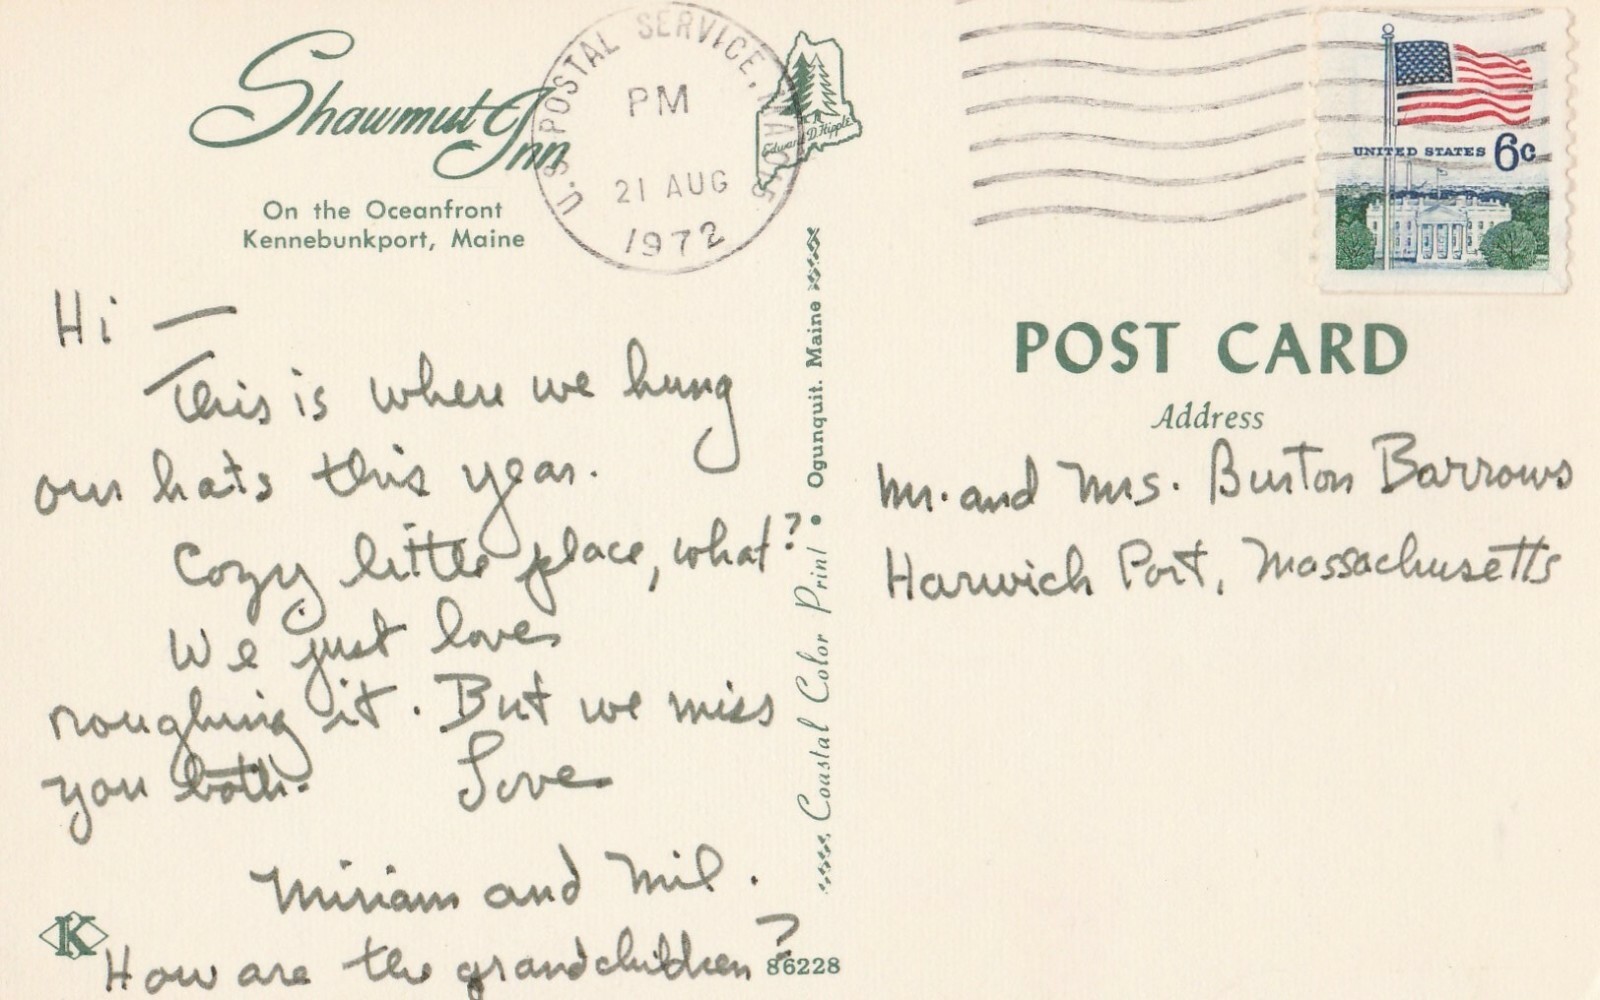 Shawmut Inn
On the Oceanfront
Kennebunkport, Maine
U.S. POSTAL SERVICE, MA 015
PM
21 AUG
1972
Edward D. Hipple
UNITED STATES 6c
Hi —
This is where we hung
our hats this year.
Cozy little place, what?
We just love
roughing it. But we miss
you both. Love
Miriam and Mil.
How are the grandchildren?
K
86228
Coastal Color Print • Ogunquit. Maine
POST CARD
Address
Mr. and Mrs. Burton Barrows
Harwich Port, Massachusetts